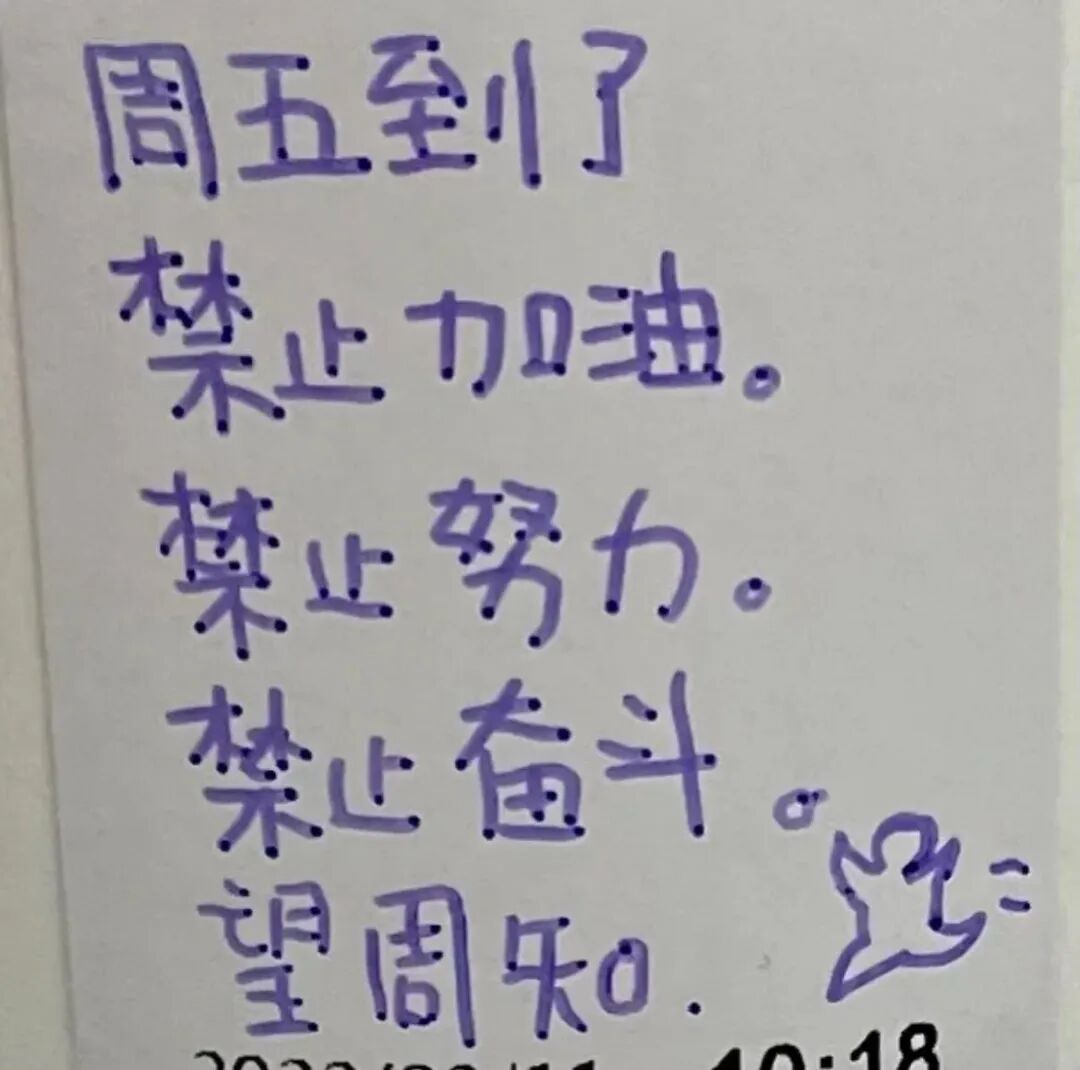 周五到了
禁止加油。
禁止努力。
禁止奋斗。
望周知.
10:18